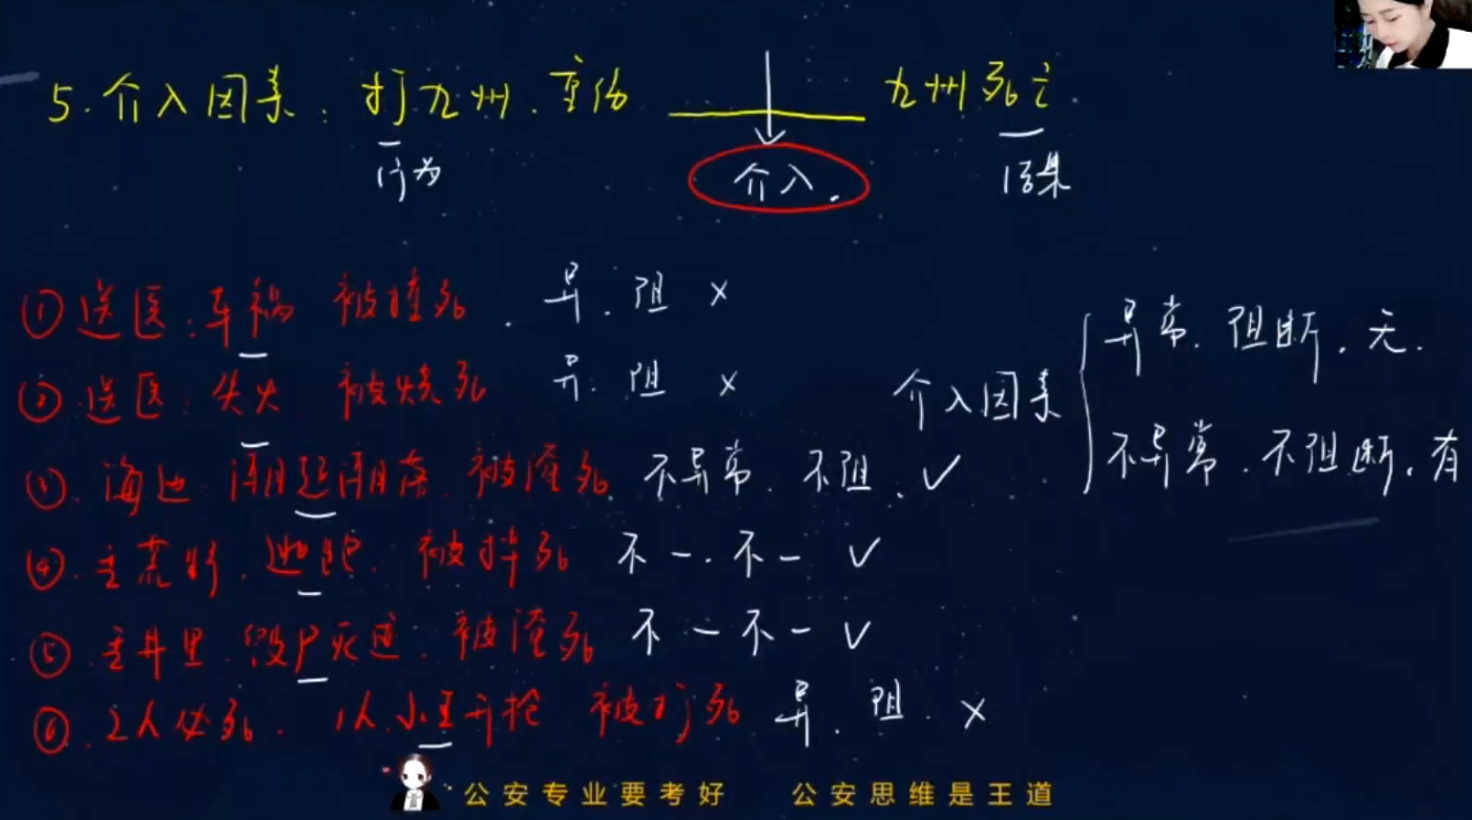 5.介入因素:打九州.重伤 九州死亡.
行为 介入. 结果
①送医:车祸 被撞死. 异.阻 ×
②送医:失火 被烧死 异.阻 ×
③.海边 潮起潮落 被淹死 不异常.不阻.✓
④.主荒野.逃跑.被摔死 不一.不一 ✓
⑤.丢井里 毁尸灭迹.被淹死 不一不一 ✓
⑥.2人必死. 1人.小王开枪 被打死 异.阻.×
介入因素
异常.阻断.无.
不异常.不阻断.有
公安专业要考好 公安思维是王道